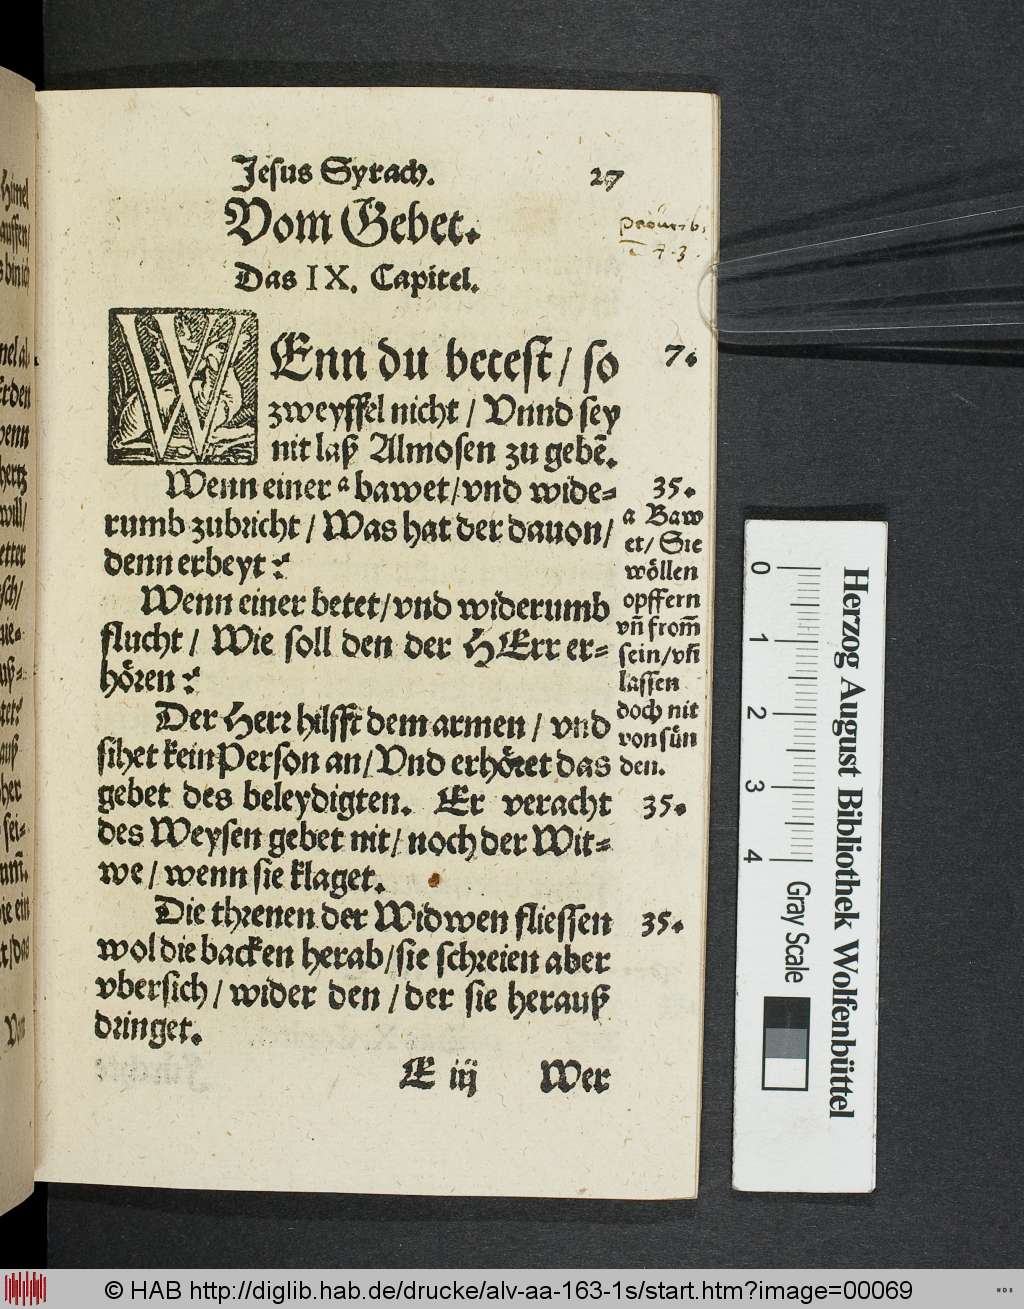 Jesus Syrach. 27
Vom Gebet.
Das IX. Capitel.
WEnn du betest / so
zweyffel nicht / Vnnd sey
nit laß Almosen zu gebẽ.
7.
Wenn einer a bawet/vnd wide⸗
rumb zubricht / Was hat der dauon /
denn erbeyt?
35.
a Baw
et / Sie
wöllen
opffern
vñ from̃
sein/vñ
lassen
doch nit
von sün
den.
Wenn einer betet/vnd widerumb
flucht / Wie soll den der HErr er⸗
hören?
Der Herr hilfft dem armen / vnd
sihet kein Person an / Vnd erhöret das
gebet des beleydigten. Er veracht
des Weysen gebet nit / noch der Wit⸗
we / wenn sie klaget.
35.
Die threnen der Widwen fliessen
wol die backen herab/sie schreien aber
vbersich / wider den / der sie herauß
dringet.
35.
E iij Wer
0 1 2 3 4
Herzog August Bibliothek Wolfenbüttel
Gray Scale
© HAB http://diglib.hab.de/drucke/alv-aa-163-1s/start.htm?image=00069